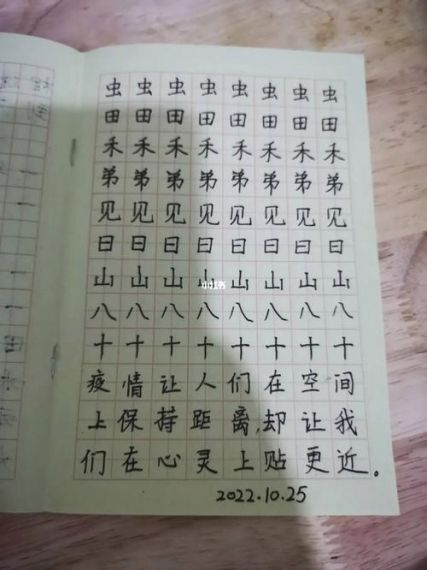 虫虫虫虫虫虫虫虫
田田田田田田田田
禾禾禾禾禾禾禾禾
弟弟弟弟弟弟弟弟
见见见见见见见见
日日日日日日日日
山山山山山山山山
小红书
八八八八八八八八
十十十十十十十十
疫情让人们在空间
上保持距离,却让我
们在心灵上贴更近。
2022.10.25